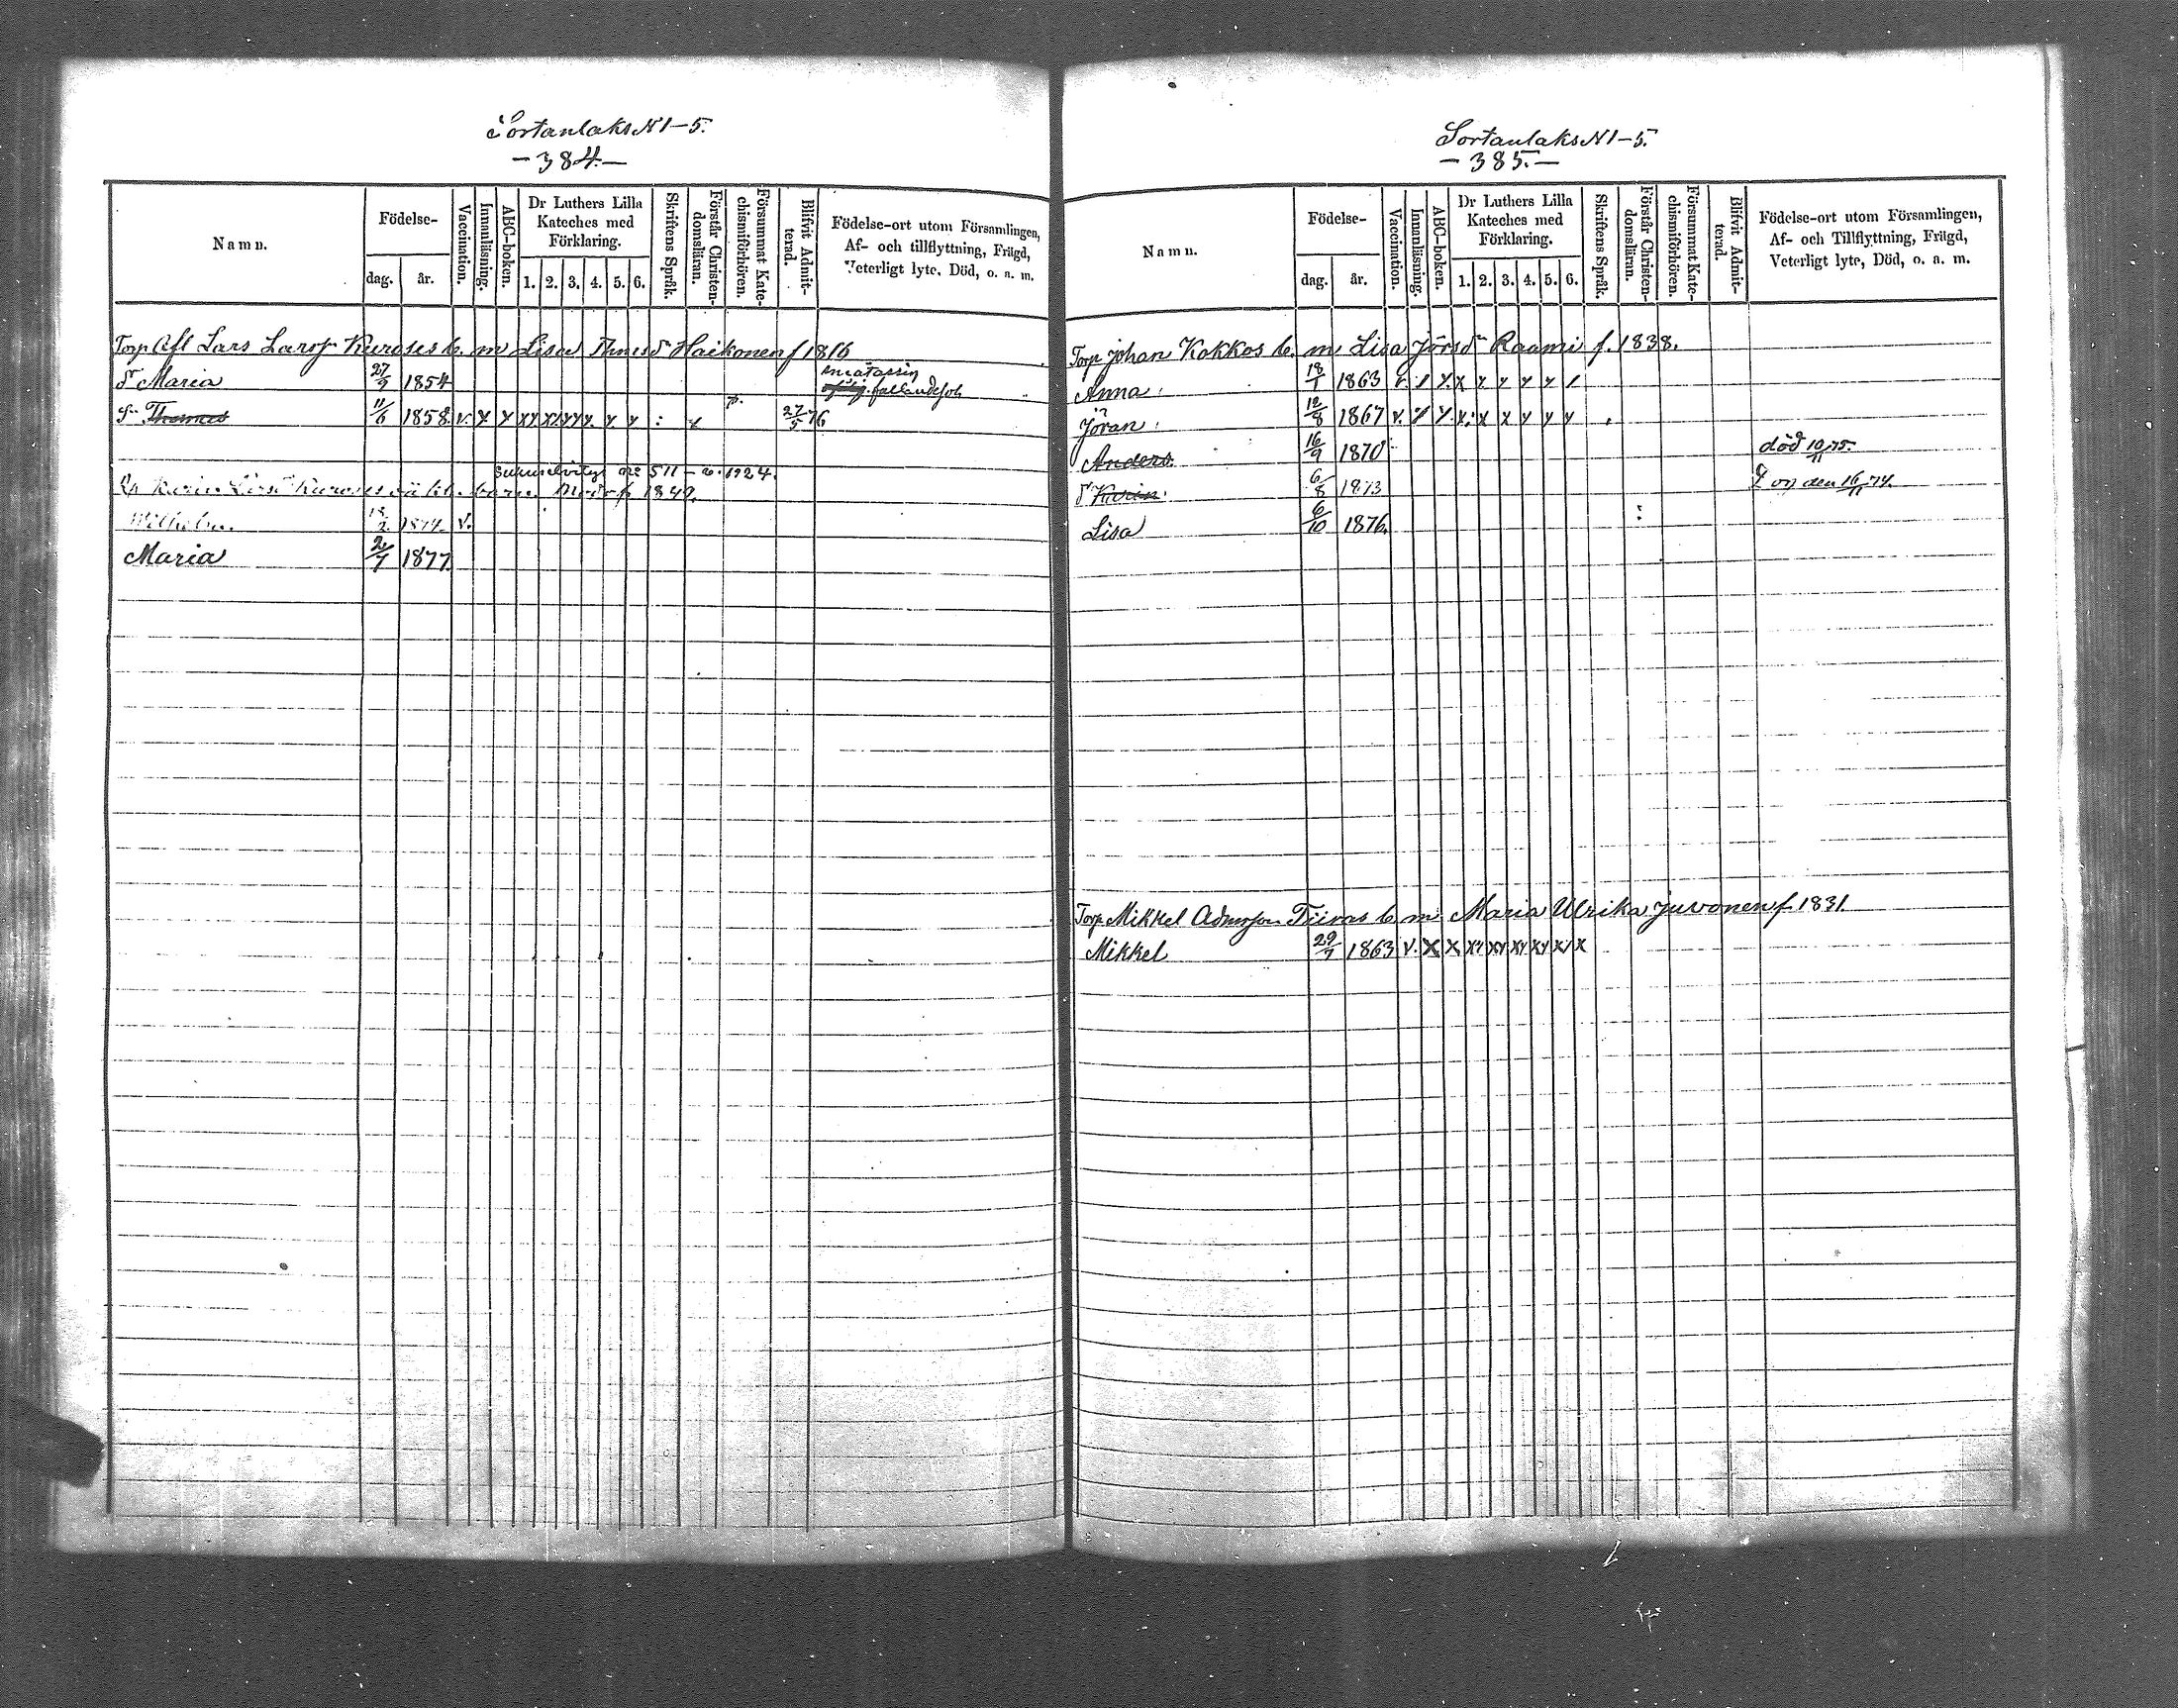 Sortanlaks N 1–5.
– 384. –
Namn. Födelse- dag. år. Vaccination. Innanläsning. ABC-boken. Dr Luthers Lilla Kateches med Förklaring. 1. 2. 3. 4. 5. 6. Skriftens Språk. Förstår Christendomsläran. Försummat Katechismiförhören. Blifvit Admitterad. Födelse-ort utom Församlingen, Af- och tillflyttning, Frägd, Veterligt lyte, Död, o. a. m.
Torp. Afl Lars Larss Kuroses b. m Lisa Thmsd:r Haikonen f 1816
dr Maria 27/9 1854 fallandesot
Sn Thomas 11/6 1858. v. x y xy xy xy y. y y : 27/5 76
1924.
Karin Larsd:r Kuroses barn. Modr f. 1849.
Wilhelm. 1874. v.
Maria 2/7 1877.
Sortanlaks N 1–5.
– 385. –
Namn. Födelse- dag. år. Vaccination. Innanläsning. ABC-boken. Dr Luthers Lilla Kateches med Förklaring. 1. 2. 3. 4. 5. 6. Skriftens Språk. Förstår Christendomsläran. Försummat Katechismiförhören. Blifvit Admitterad. Födelse-ort utom Församlingen, Af- och Tillflyttning, Frägd, Veterligt lyte, Död, o. a. m.
Torp Johan Kokkos b. m Lisa Jörsd:r Raami f. 1838.
Anna 18/1 1863 v. / y. x y y y y /
Jöran 12/8 1867 v. / y. x. x x y y y
Anders. 16/9 1870 död 10/11 75.
dr Karin. 6/8 1873 den 16/11 74.
Lisa 6/10 1876.
Torp. Mikkel Admsson Tiivas b. m Maria Ulrika Juvonen f. 1831.
Mikkel 29/7 1863 v. x x xy xy xy xy xy x